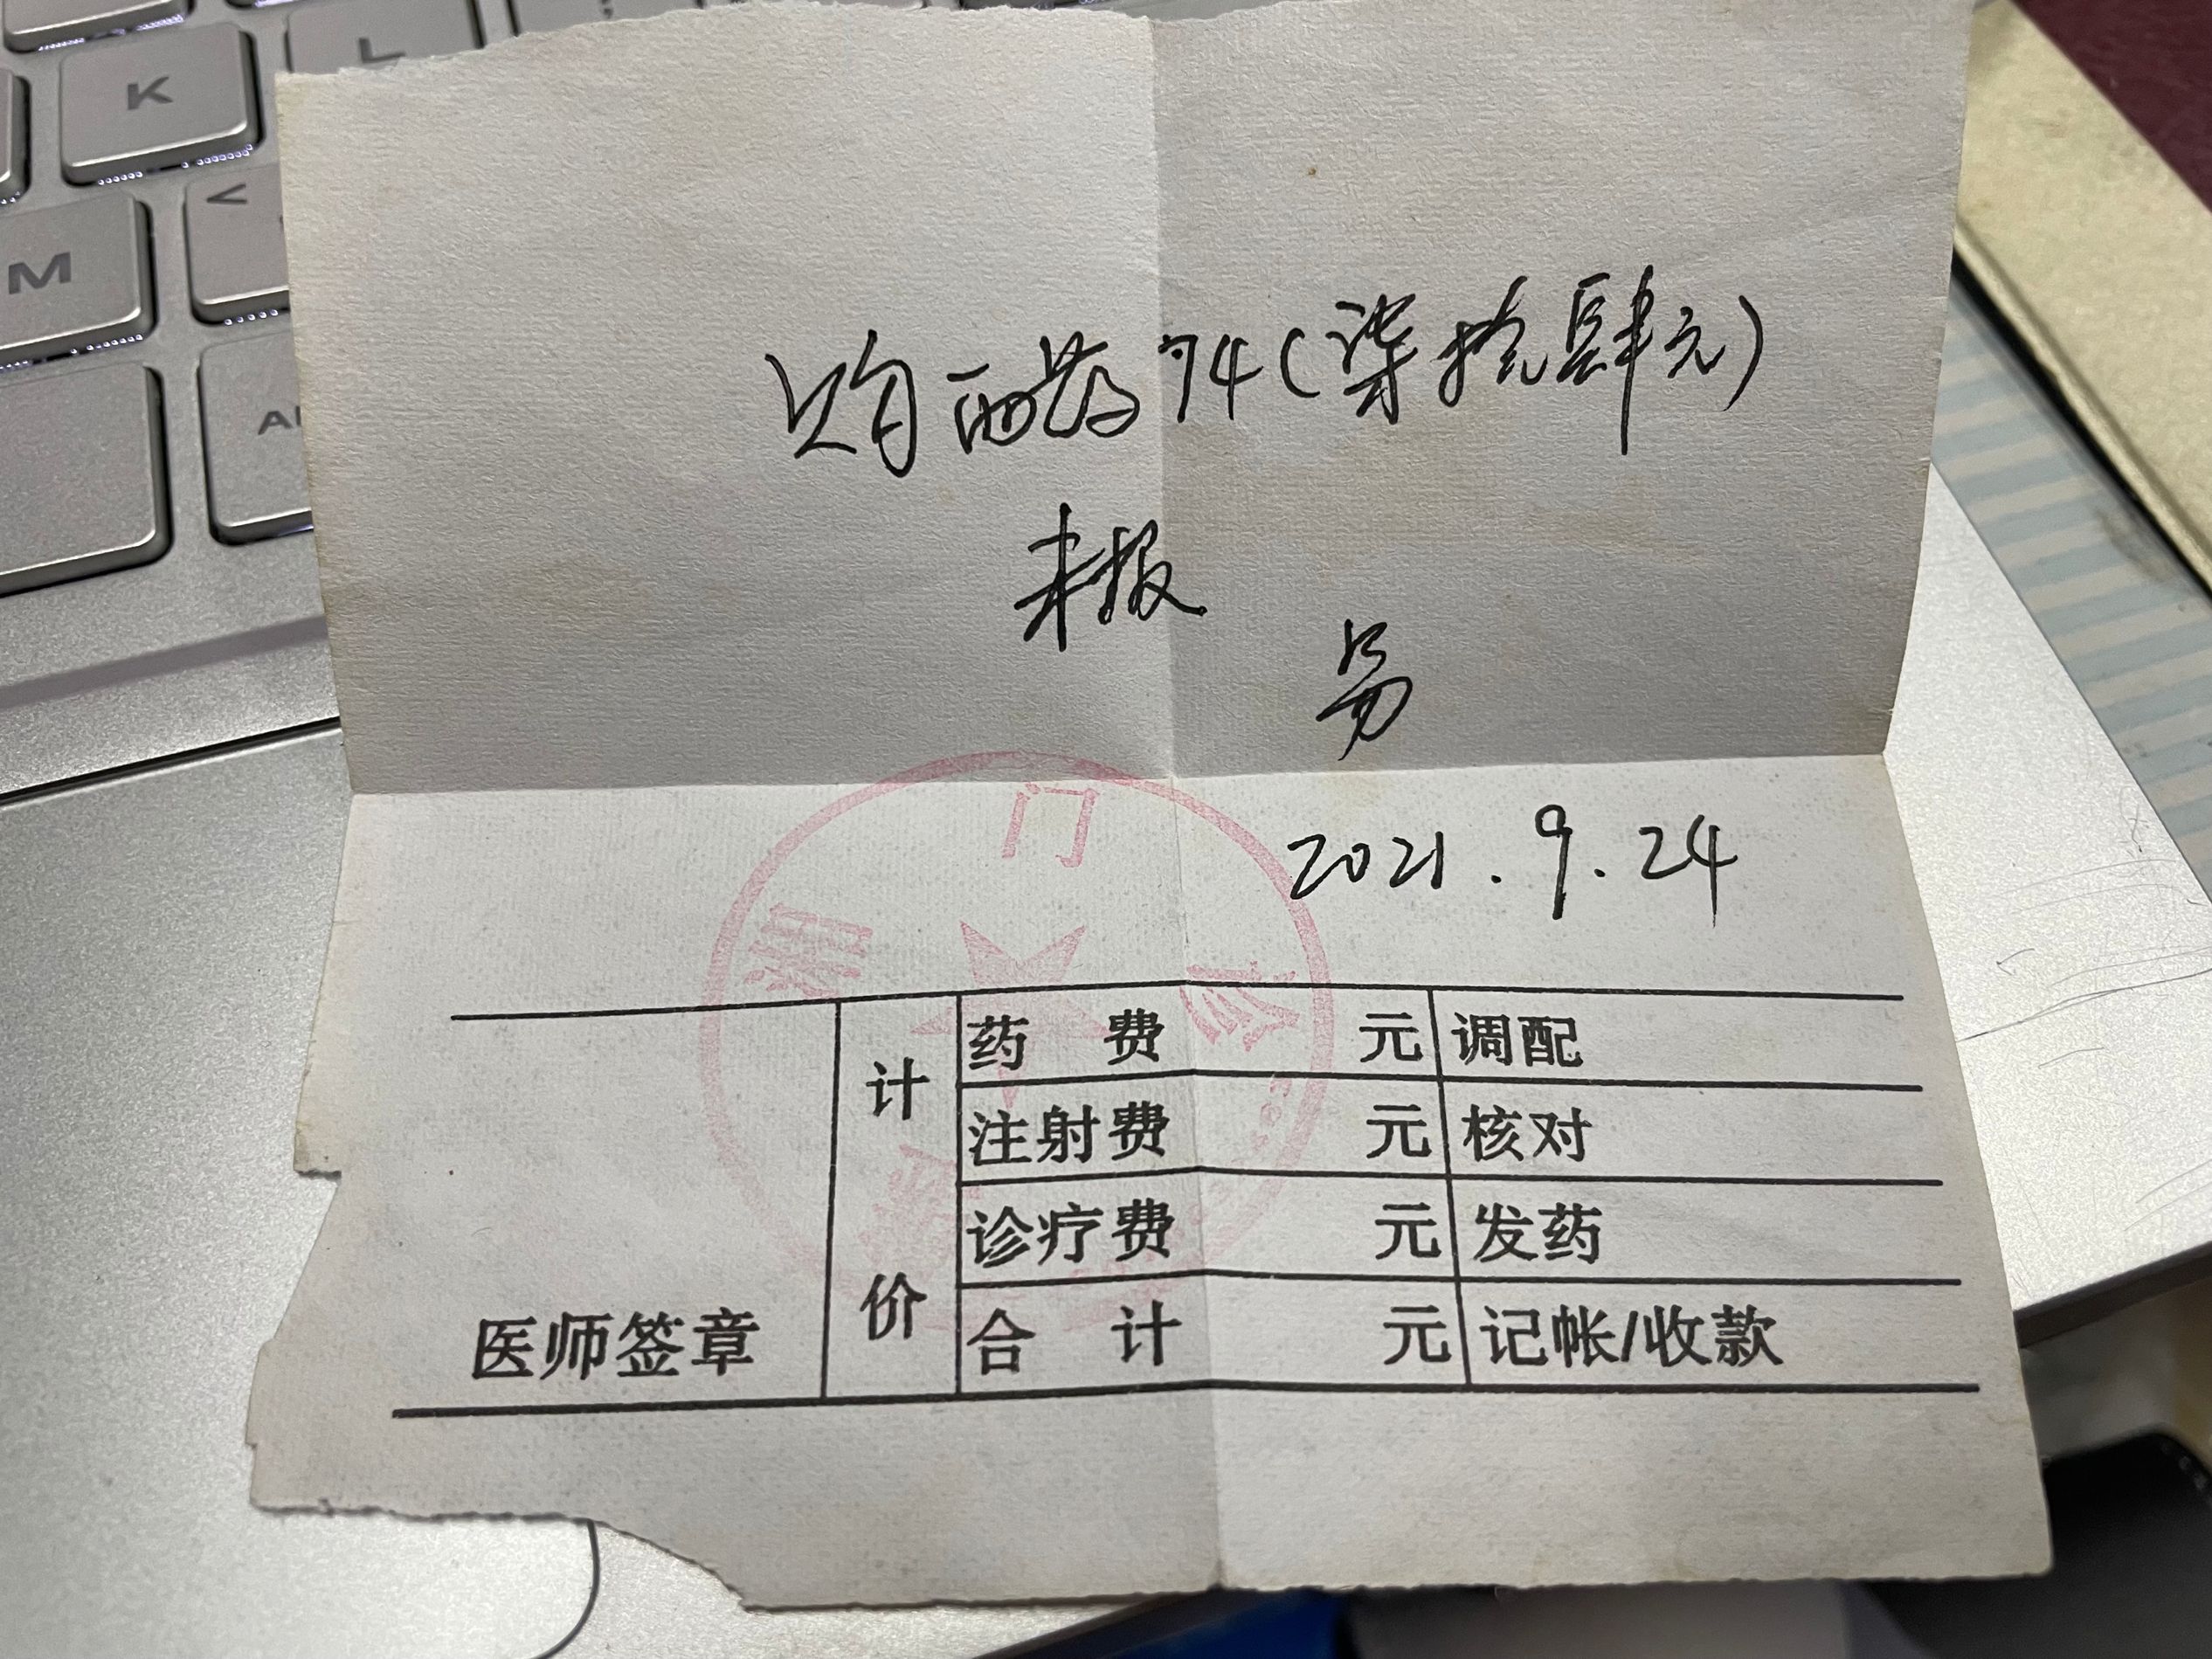 购西药74(柒拾肆元)
未报
易
2021.9.24
门
诊
药费 元 调配
计 注射费 元 核对
诊疗费 元 发药
医师签章 价 合计 元 记帐/收款
K
L
M
<